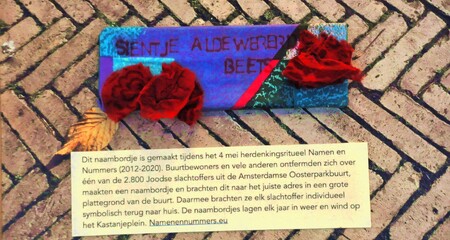 SIENTJE ALDEWERERE
BEETS
Dit naambordje is gemaakt tijdens het 4 mei herdenkingsritueel Namen en
Nummers (2012-2020). Buurtbewoners en vele anderen ontfermden zich over
één van de 2.800 Joodse slachtoffers uit de Amsterdamse Oosterparkbuurt,
maakten een naambordje en brachten dit naar het juiste adres in een grote
plattegrond van de buurt. Daarmee brachten ze elk slachtoffer individueel
symbolisch terug naar huis. De naambordjes lagen elk jaar in weer en wind op
het Kastanjeplein. Namenennummers.eu